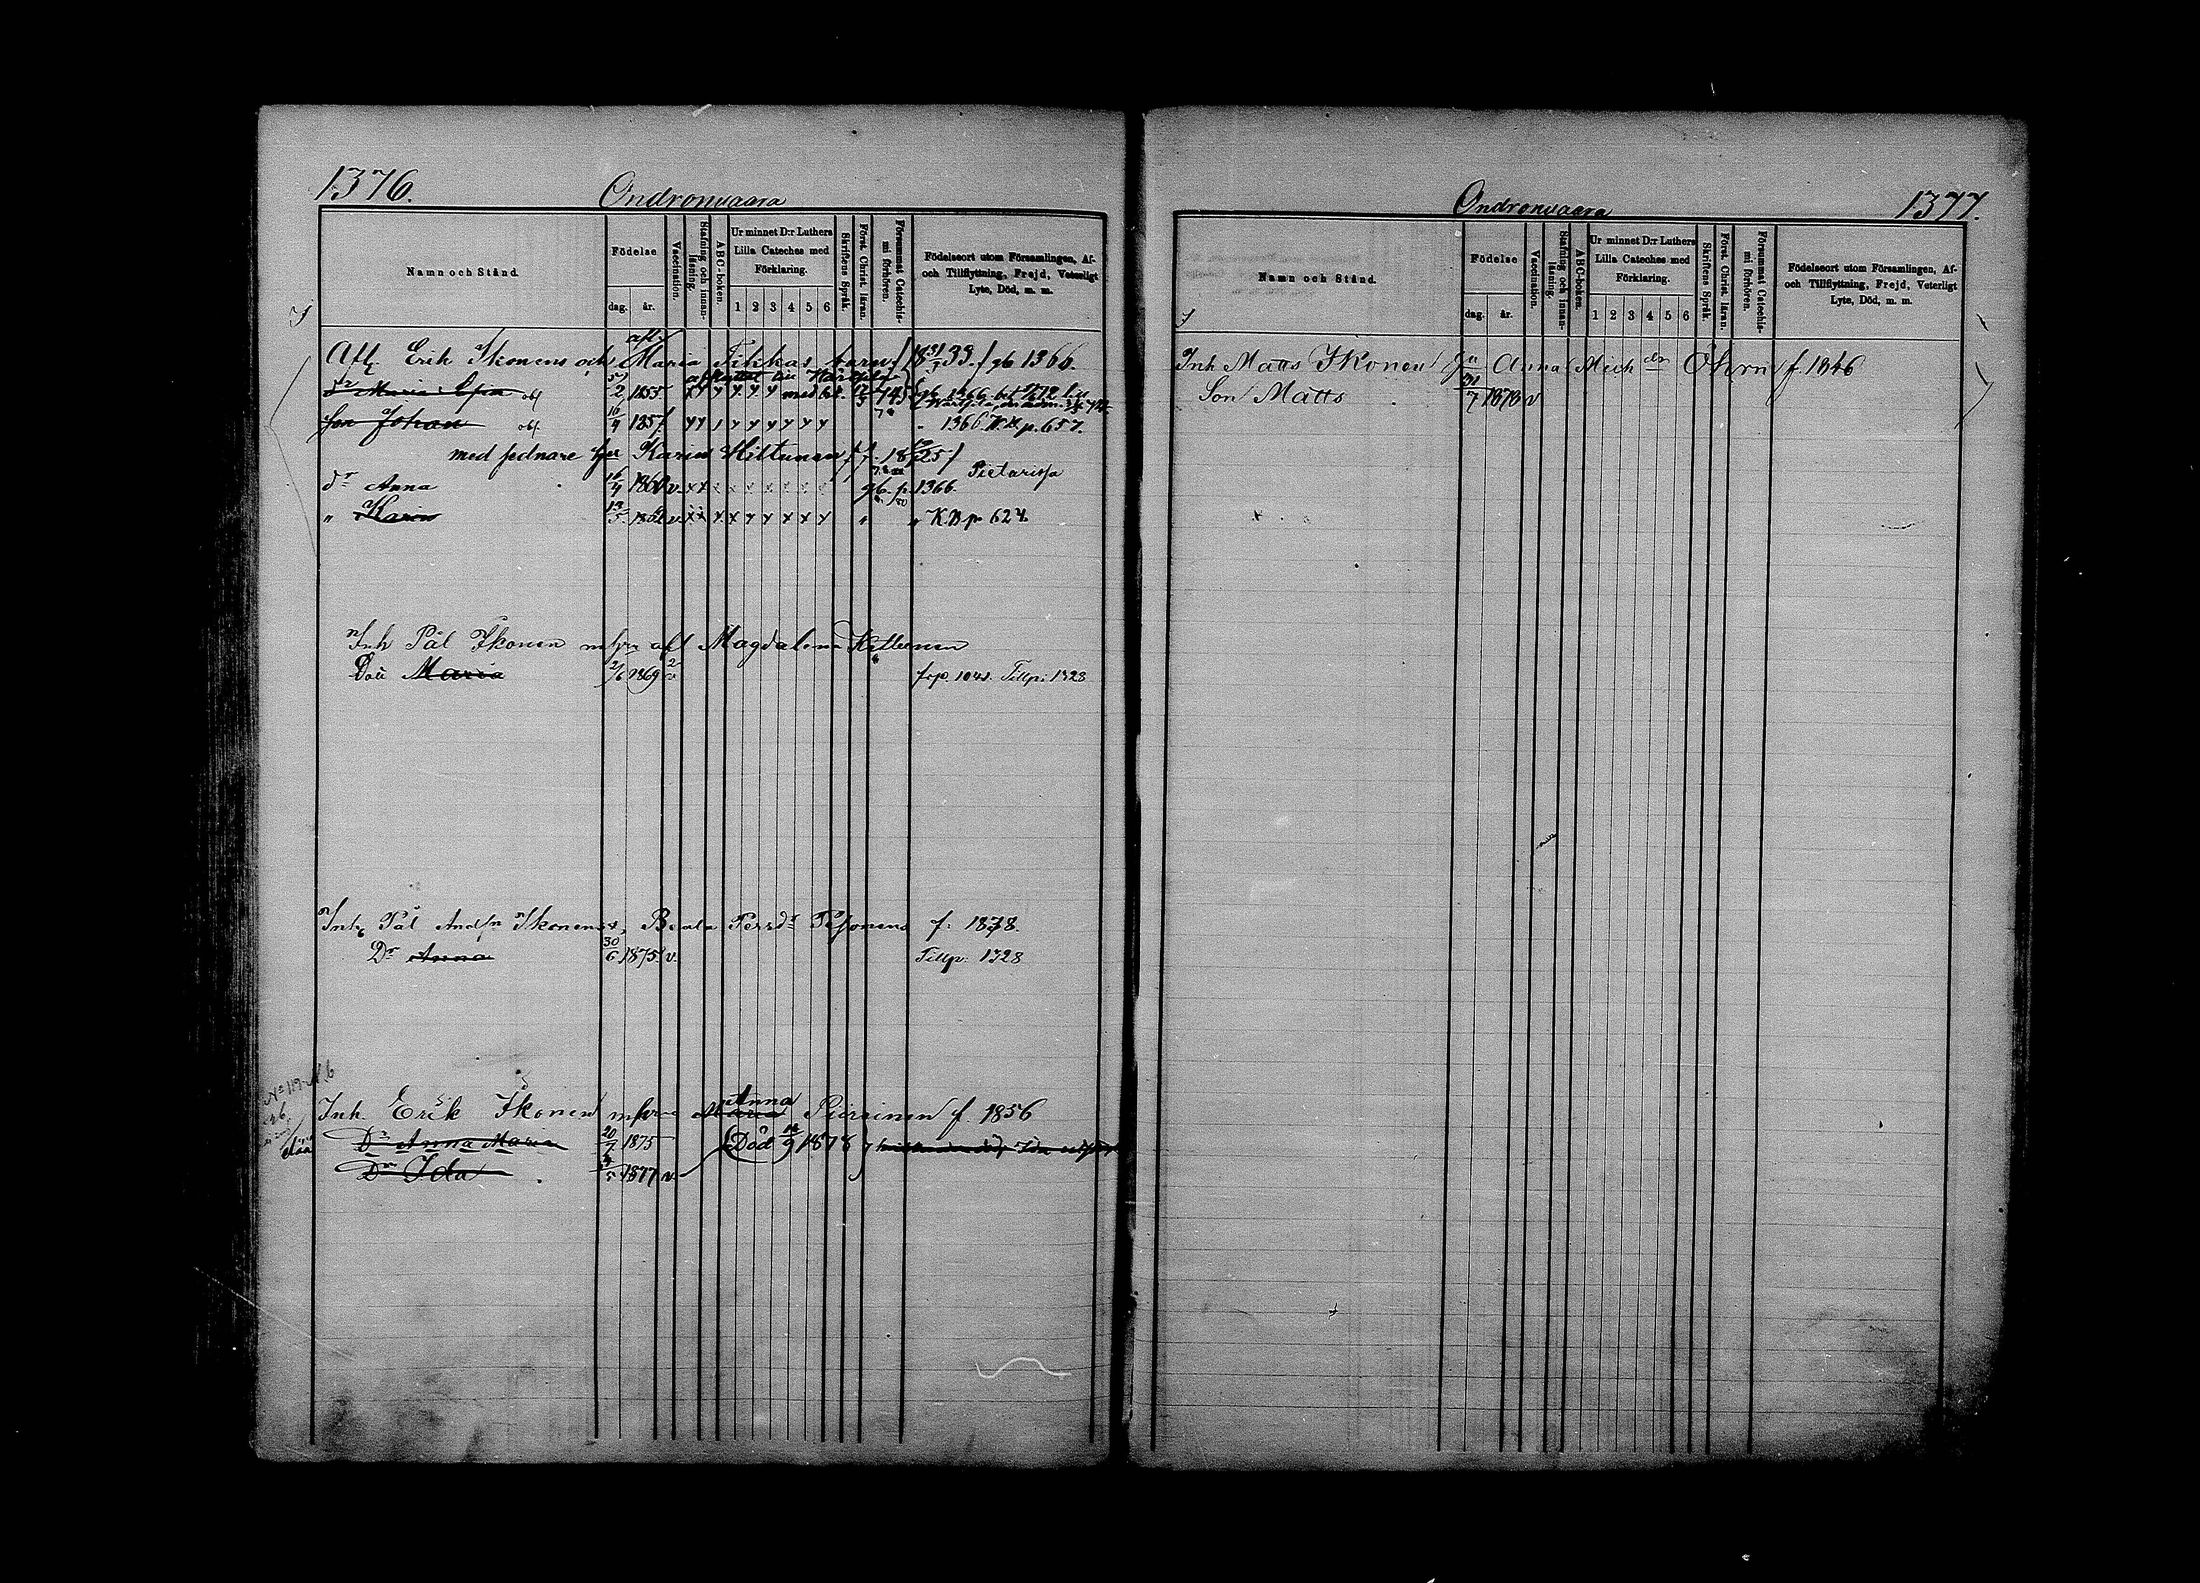 1376.
Ondronvaara
Namn och Stånd.
Födelse
dag. år.
Vaccination.
Stafning och innan-läsning.
ABC-boken.
Ur minnet D:r Luthers
Lilla Cateches med
Förklaring.
1 2 3 4 5 6
Skriftens Språk.
Först. Christ. läran.
Försummat Catechis-mi förhören.
Födelseort utom Församlingen, Af-
och Tillflyttning, Frejd, Veterligt
Lyte, Död, m. m.
afl.
Afl. Erik Ikonens och Maria Tikkas barn 33. gb 1366.
dr Maria Elsa obf 1855
son Johan obf. 10/4 1857 1366. K.B p. 657.
med sednare hu Karin Hiltunen f. 1825
Pietarissa
dr Anna 16/4 1860 v. gb. p. 1366.
" Karin 13/5 1862 v. " " K.B p. 624.
Inh Pål Ikonen m hu afl Magdalena Kettunen
Dotter Maria 2/6 1869 v frp. 1041. Tillp: 1328
Inh. Pål Andsn Ikonens, Beata Persdr Pesonens f. 1838.
Dr Anna 30/6 1875 v. Tillp: 1328
Anna
Inh. Erik Ikonen m hu Maria Piirainen f. 1856
Dr Anna Maria 20/7 1875 Död 1878
Dr Ida 1877 v.
Ondronvaara
1377.
Namn och Stånd.
Födelse
dag. år.
Vaccination.
Stafning och innan-läsning.
ABC-boken.
Ur minnet D:r Luthers
Lilla Cateches med
Förklaring.
1 2 3 4 5 6
Skriftens Språk.
Först. Christ. läran.
Försummat Catechis-mi förhören.
Födelseort utom Församlingen, Af-
och Tillflyttning, Frejd, Veterligt
Lyte, Död, m. m.
Inh Matts Ikonen Anna Mich dr f. 1846
Son Matts 31/7 1878 v